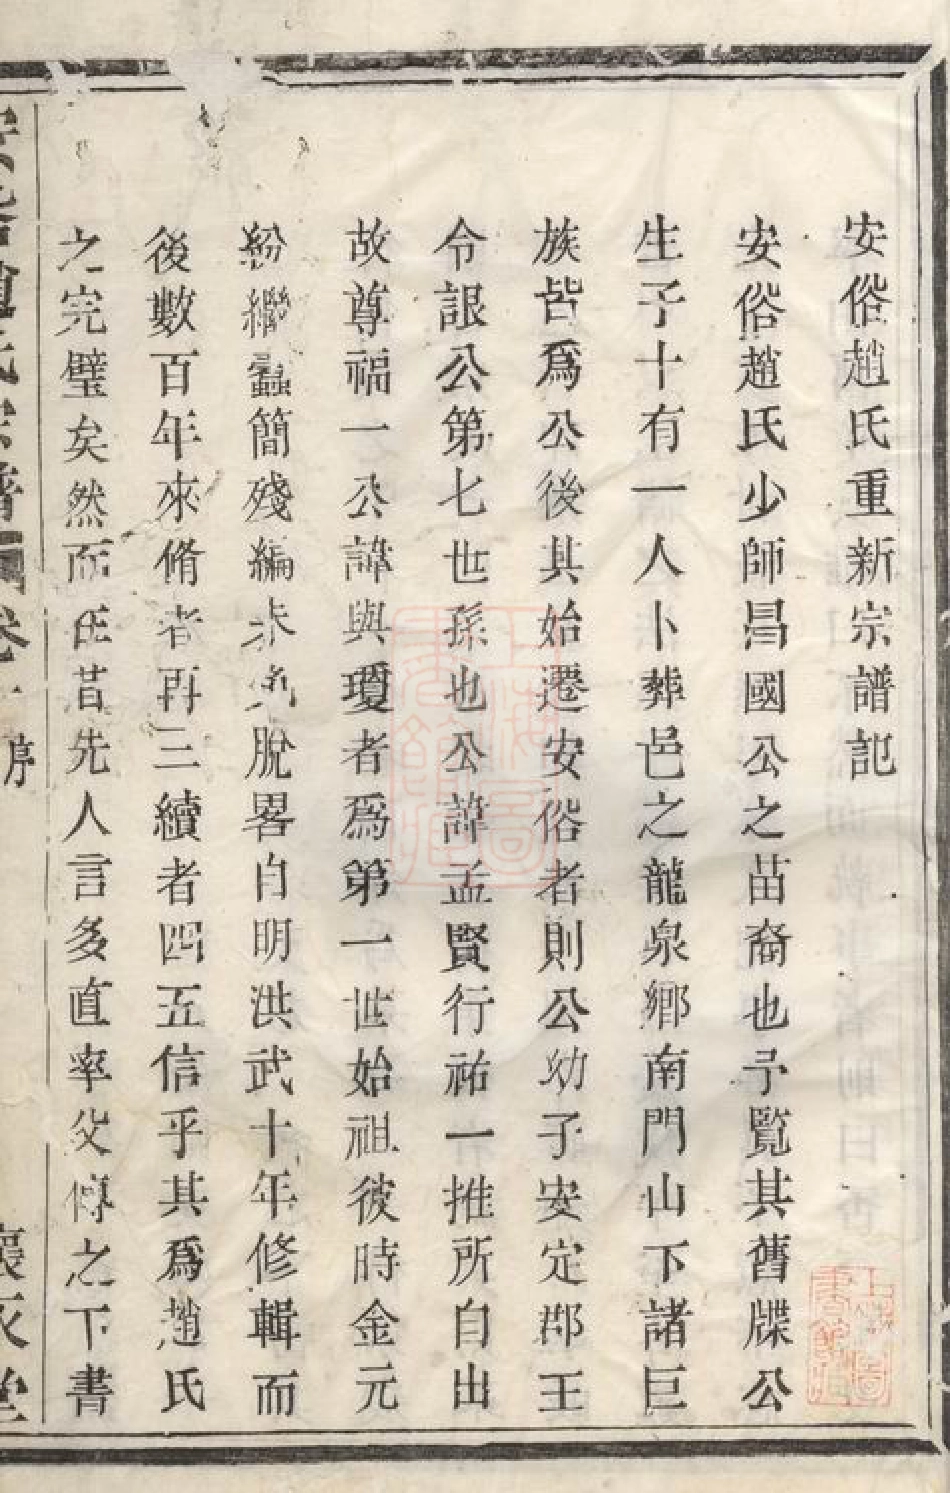 安俗趙氏重新宗譜記
安俗趙氏少師昌國公之苗裔也予覧其舊牒公
生子十有一人卜葬邑之龍泉鄉南門山下諸巨
族皆爲公後其始遷安俗者則公幼子安定郡王
令詪公第七世孫也公諱孟賢行祐一推所自出
故尊福一公諱與瓊者爲第一世始祖彼時金元
紛繼蠹簡殘編未免脫畧自明洪武十年修輯而
後數百年來脩者再三續者四五信乎其爲趙氏
之完璧矣然而在昔先人言多直率父傳之下書
安俗趙氏宗譜 卷一 序 堂
上海圖書館藏
上海圖書館藏